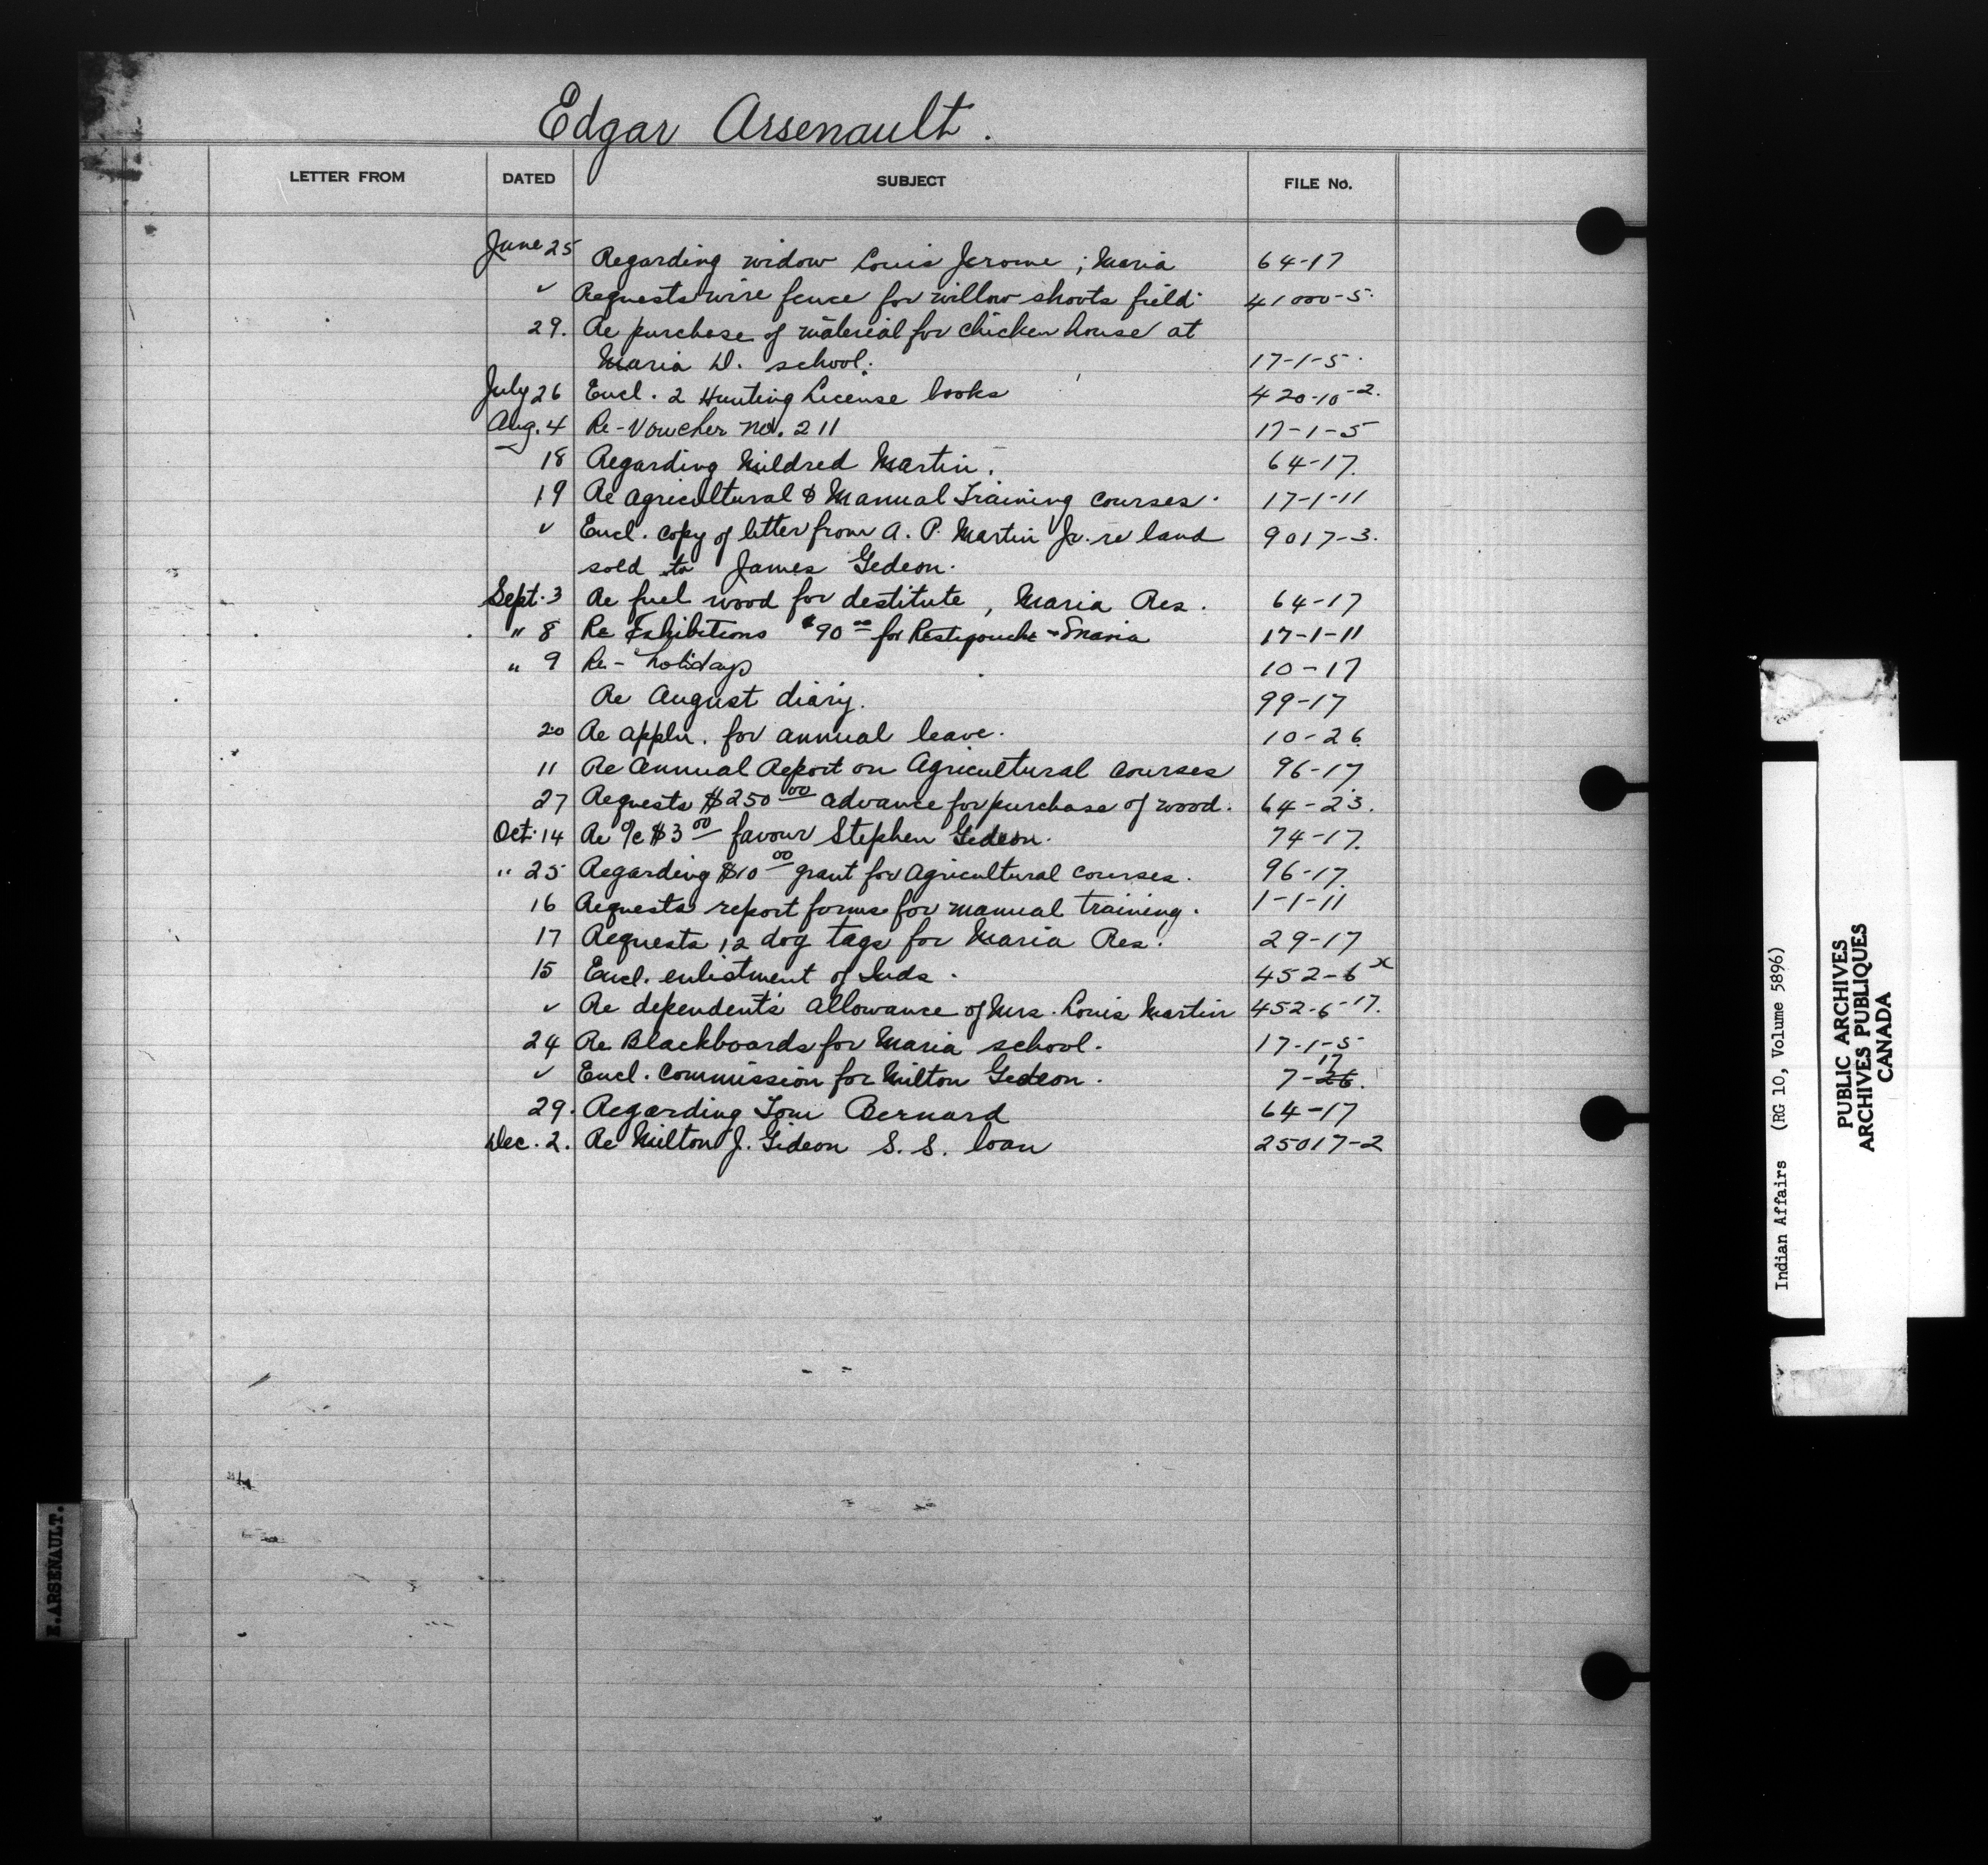 Edgar Arsenault.
LETTER FROM DATED SUBJECT FILE No.
June 25 Regarding widow Louis Jerome; Maria 64-17
" Requests wire fence for willow shoots field. 41000-5.
29. Re purchase of material for chicken house at
Maria D. school. 17-1-5.
July 26 Encl. 2 Hunting License books 420-10-2.
Aug. 4 Re-Voucher no. 211 17-1-5
18 Regarding Mildred Martin. 64-17.
19 Re Agricultural & Manual Training courses. 17-1-11
" Encl. copy of letter from A. P. Martin Jr. re land 9017-3.
sold to James Gedeon.
Sept. 3 Re fuel wood for destitute, Maria Res. 64-17
" 8 Re Exhibitions $90 00 for Restigouche - Maria 17-1-11
" 9 Re- holidays 10-17
Re August diary. 99-17
20 Re appln. for annual leave. 10-26.
11 Re Annual Report on Agricultural courses 96-17
27 Requests $250 00 advance for purchase of wood. 64-23.
Oct. 14 Re o/c $3 00 favour Stephen Gedeon. 74-17.
" 25 Regarding $10 00 grant for agricultural courses. 96-17.
16 Requests report forms for manual training. 1-1-11
17 Requests 12 dog tags for Maria Res. 29-17
15 Encl. enlistment of Inds. 452-6 x
" Re dependent's allowance of Mrs. Louis Martin 452-6-17.
24 Re Blackboards for Maria school. 17-1-5
" Encl. Commission for Milton Gedeon. 7-26. 17
29. Regarding Tom Bernard 64-17
Dec. 2. Re Milton J. Gideon S. S. loan 25017-2
E. ARSENAULT.
Indian Affairs (RG 10, Volume 5896)
PUBLIC ARCHIVES
ARCHIVES PUBLIQUES
CANADA